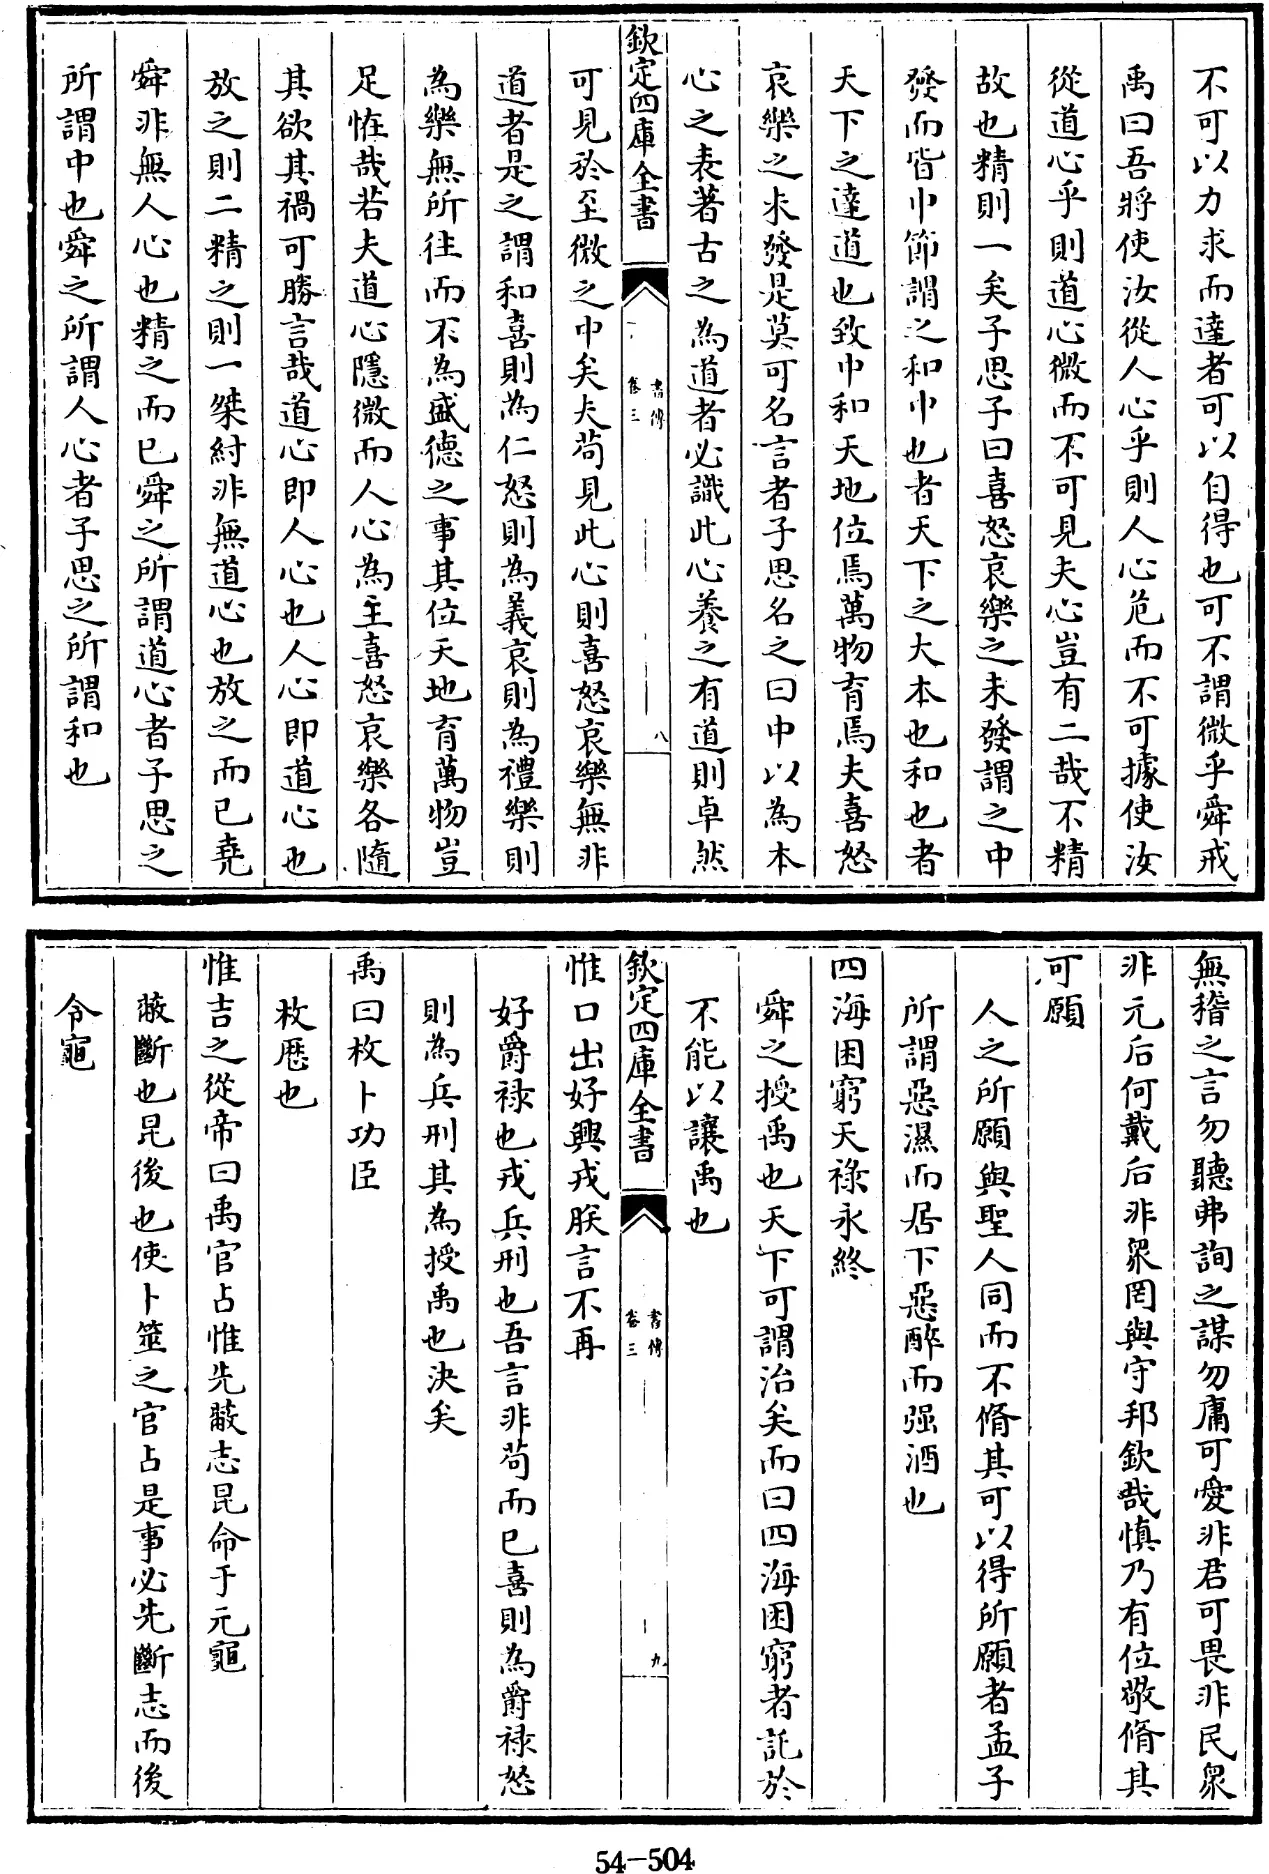 不可以力求而達者可以自得也可不謂微乎舜戒
禹曰吾將使汝從人心乎則人心危而不可據使汝
從道心乎則道心微而不可見夫心豈有二哉不精
故也精則一矣子思子曰喜怒哀樂之未發謂之中
發而皆中節謂之和中也者天下之大本也和也者
天下之達道也致中和天地位焉萬物育焉夫喜怒
哀樂之未發是莫可名言者子思名之曰中以為本
心之表著古之為道者必識此心養之有道則卓然
欽定四庫全書
書傳
卷三
八
可見於至微之中矣夫苟見此心則喜怒哀樂無非
道者是之謂和喜則為仁怒則為義哀則為禮樂則
為樂無所往而不為盛德之事其位天地育萬物豈
足恠哉若夫道心隱微而人心為主喜怒哀樂各隨
其欲其禍可勝言哉道心即人心也人心即道心也
放之則二精之則一桀紂非無道心也放之而已堯
舜非無人心也精之而已舜之所謂道心者子思之
所謂中也舜之所謂人心者子思之所謂和也
無稽之言勿聽弗詢之謀勿庸可愛非君可畏非民衆
非元后何戴后非衆罔與守邦欽哉慎乃有位敬脩其
可願
人之所願與聖人同而不脩其可以得所願者孟子
所謂惡濕而居下惡醉而强酒也
四海困窮天祿永終
舜之授禹也天下可謂治矣而曰四海困窮者託於
不能以讓禹也
欽定四庫全書
書傳
卷三
九
惟口出好興戎朕言不再
好爵祿也戎兵刑也吾言非苟而已喜則為爵祿怒
則為兵刑其為授禹也決矣
禹曰枚卜功臣
枚歷也
惟吉之從帝曰禹官占惟先蔽志昆命于元龜
蔽斷也昆後也使卜筮之官占是事必先斷志而後
令龜
54-504